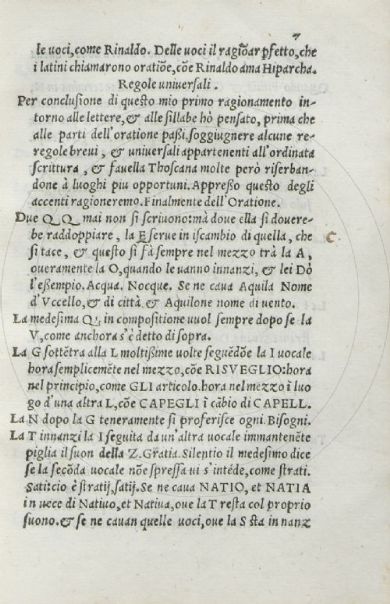 7
le uoci, come Rinaldo. Delle uoci il ragiōar ꝑfetto, che
i latini chiamarono oratiōe, cōe Rinaldo ama Hiparcha.
Regole uniuersali.
Per conclusione di questo mio primo ragionamento in-
torno alle lettere, & alle sillabe hò pensato, prima che
alle parti dell'oratione paßi. soggiugnere alcune re-
regole breui, & uniuersali appartenenti all'ordinata
scrittura, & fauella Thoscana molte però riserban-
done à luoghi piu opportuni. Appreßo questo degli
accenti ragioneremo. Finalmente dell'Oratione.
Due Q Q mai non si scriuono: mà doue ella si douere-
be raddoppiare, la C serue in iscambio di quella, che
si tace, & questo si fà sempre nel mezzo trà la A,
oueramente la O, quando le uanno innanzi, & lei Dò
l'eßempio. Acqua. Nocque. Se ne caua Aquila Nome
d'Vccello, & di città & Aquilone nome di uento.
La medesima Q, in compositione uuol sempre dopo se la
V, come anchora s'è detto di sopra.
La G sottētra alla L moltißime uolte seguēdōe la I uocale
hora semplicemēte nel mezzo, cōe RISVEGLIO: hora
nel principio, come GLI articolo. hora nel mezzo ī luo
go d'una altra L, cōe CAPEGLI ī cābio di CAPELL.
La N dopo la G teneramente si proferisce ogni. Bisogni.
La T innanzi la I seguita da un'altra uocale immantenēte
piglia il suon della Z. Gratia. Silentio il medesimo dice
se la secōda uocale nōe spressa ui s'intēde, come strati.
Satij: cio è stratij, satij. Se ne caua NATIO, et NATIA
in uece di Natiuo, et Natiua, oue la T resta col proprio
suono. & se ne cauan quelle uoci, oue la S sta innanz
C